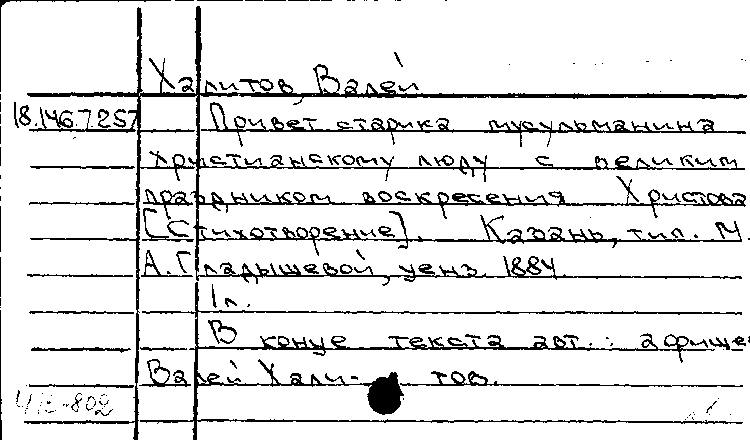 Халитов, Валей
18.146.7.257 Привет старика мусульманина
христианскому люду с великим
праздником воскресения Христова
[Стихотворение]. Казань, тип. М.
А. Гладышевой, ценз. 1884.
1 л.
В конце текста авт.: афише
Валей Хали- тов.